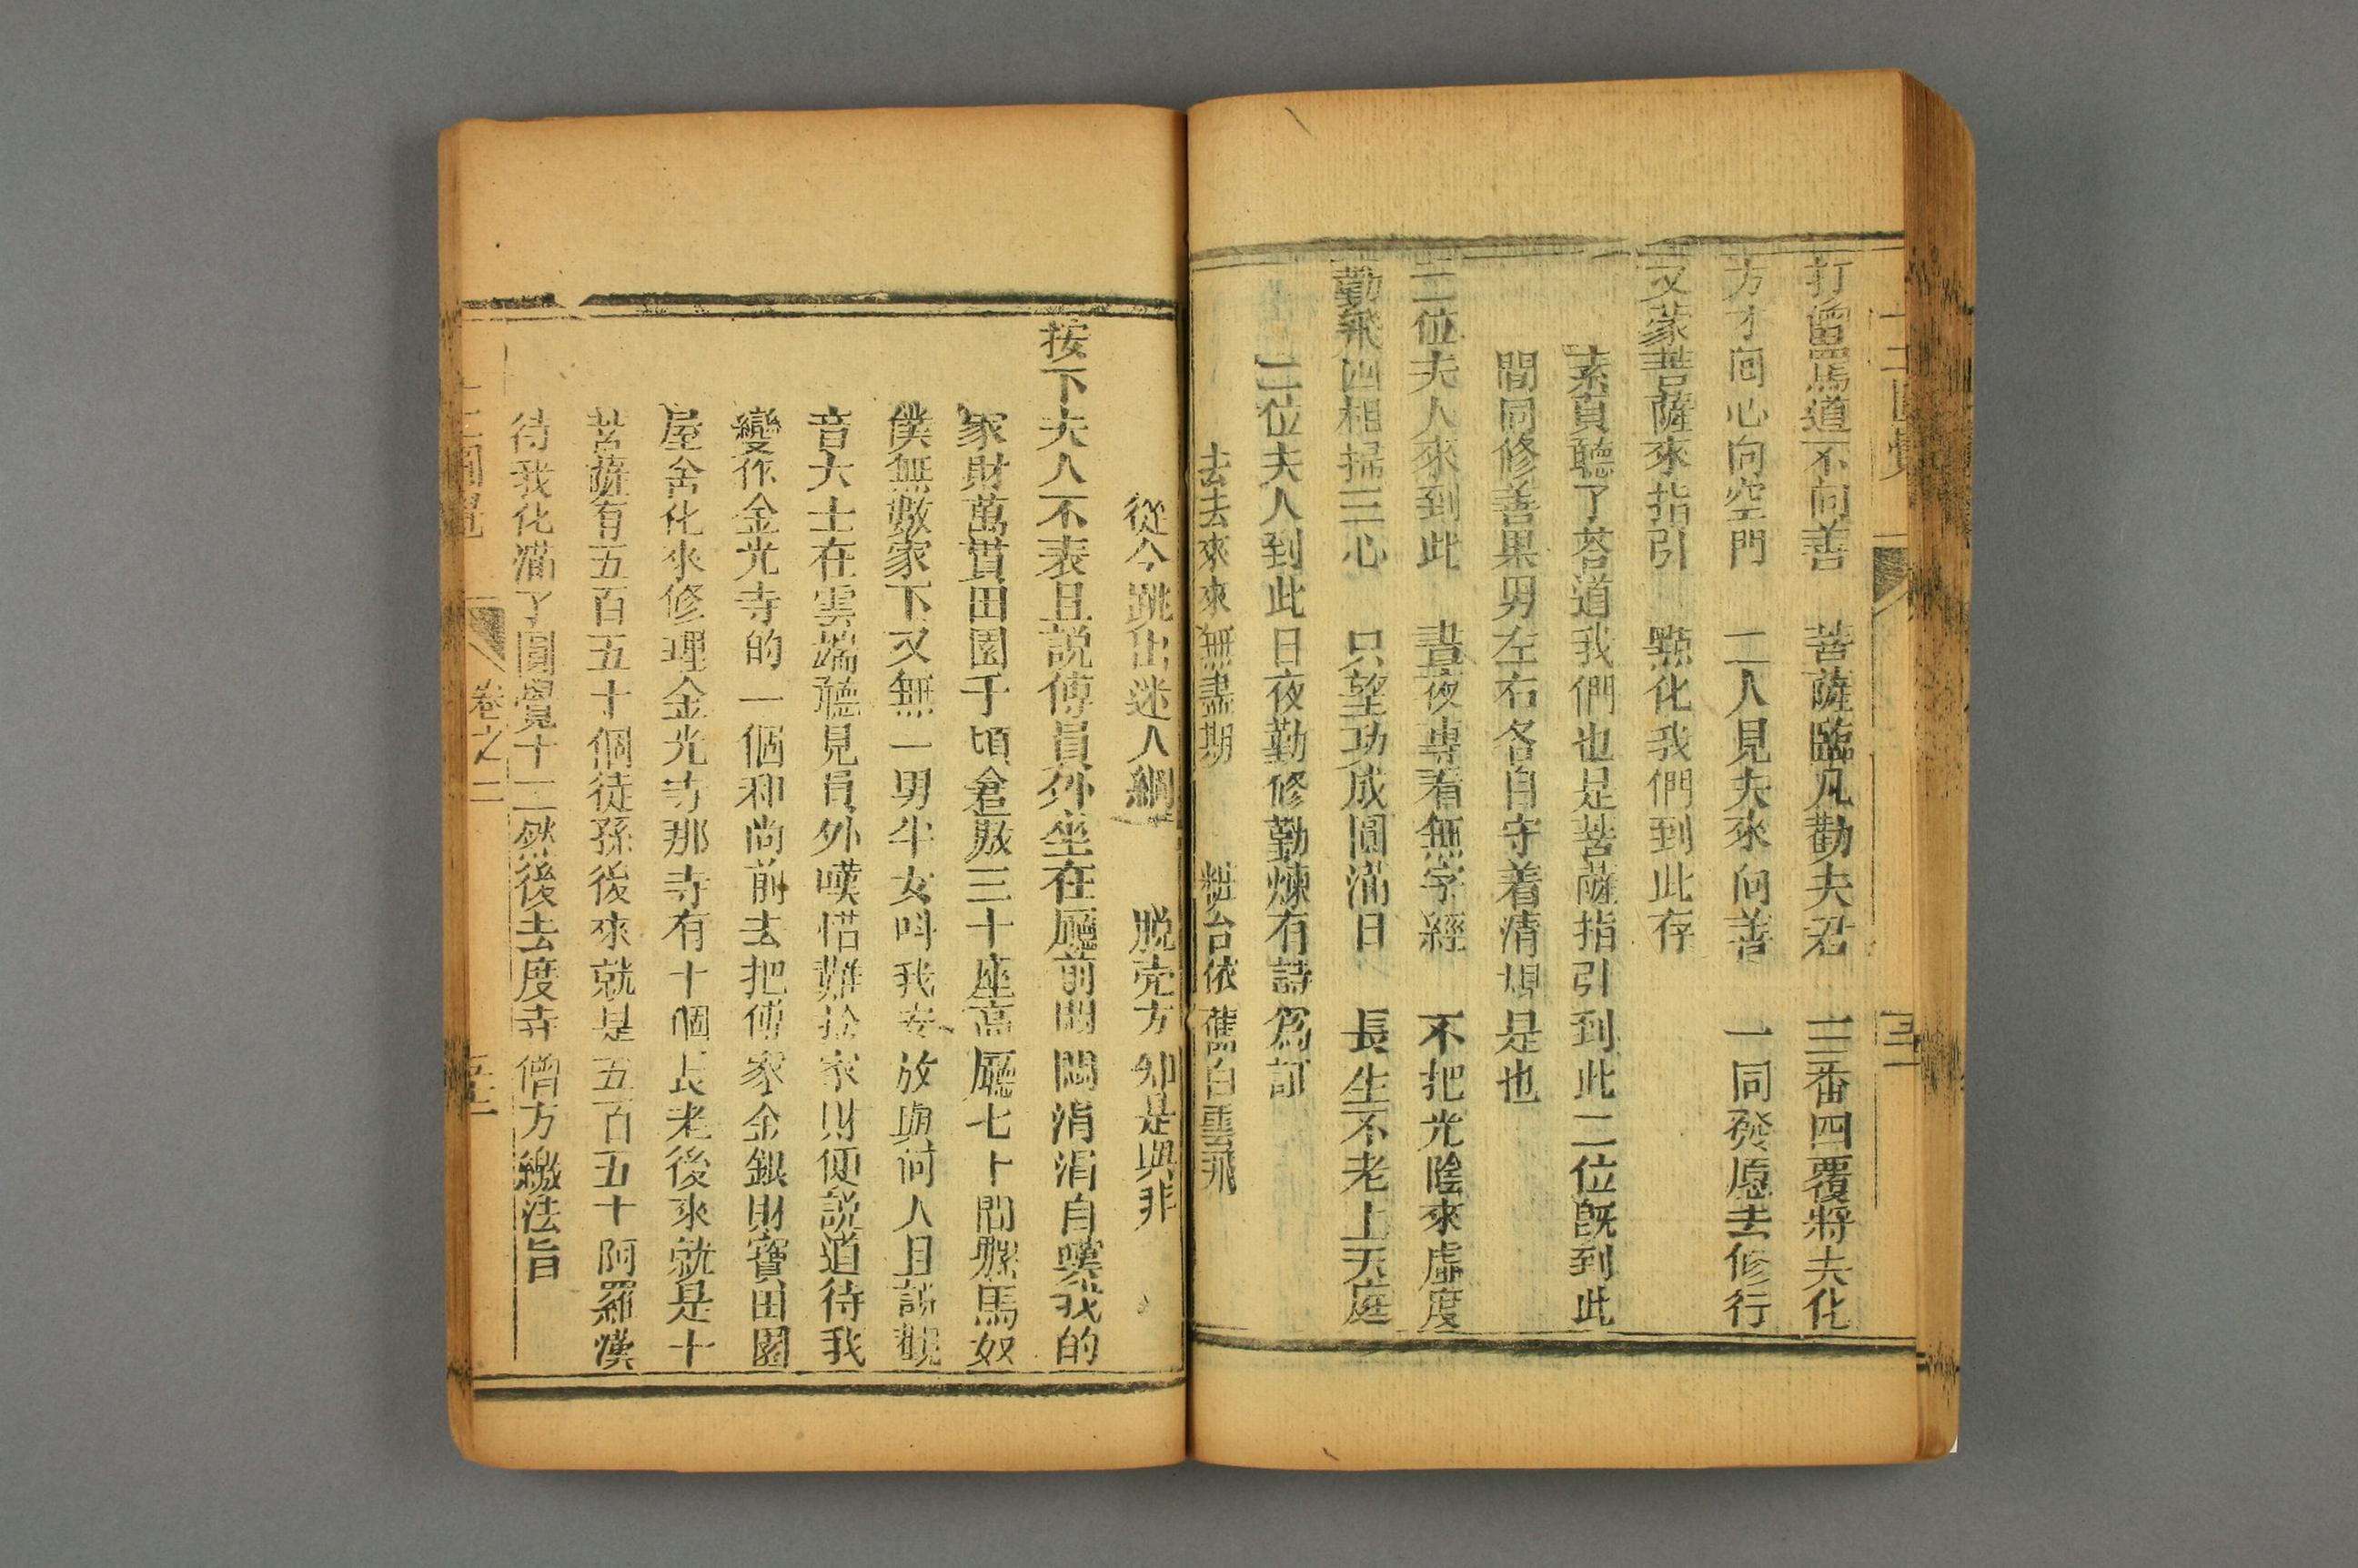 打僧罵道不向善　菩薩臨凡勸夫君　三番四覆將夫化
方才囘心向空門　二人見夫來向善　一同發愿去修行
又蒙菩薩來指引　點化我們到此存
素貞聽了荅道我們也是菩薩指引到此二位旣到此
間同修善果男左右各自守着清規是也
二位夫人來到此　晝夜專看無字經　不把光陰來虛度
勤飛四相掃三心　只望功成圓滿日　長生不老上天庭
二位夫人到此日夜勤修勤煉有詩爲証
去去來來無盡期　粧台依舊白雲飛
從今跳出迷人網　脱壳方知是與非
按下夫人不表且説傅員外坐在廳前悶悶涓涓自嘆我的
家財萬貫田園千頃倉廒三十座高廳七十間騾馬奴
僕無數家下又無一男半女呌我安放與何人且説觀
音大士在雲端聽見員外嘆惜難捨家財便説道待我
變作金光寺的一個和尚前去把傅家金銀財寶田園
屋舍化來修理金光寺那寺有十個長老後來就是十
菩薩有五百五十個徒孫後來就是五百五十阿羅漢
待我化滿了圓覺十二然後去度寺僧方繳法旨
卷之二